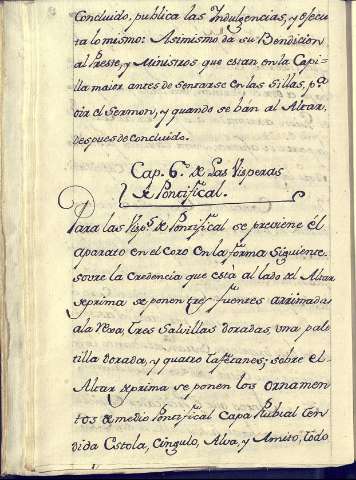 Concluido, publica las Indulgencias, y efecu
ta lo mismo: Asimismo da su Bendicion
al Preste, y Ministros que estan en la Capi-
lla maior antes de sentarse en las Sillas, p.ª
oir el Sermon, y quando se ban al Altar
despues de concluido.
Cap. 6.º de las Visperas
de Pontifical.
Para las Visp.s de Pontifical se previene el
aparato en el Coro en la forma siguiente.
sovre la Credencia que está al lado del Altar
de prima se ponen tres fuentes arrimada
ala tres Salvillas doradas, una pale
tilla dorada, y quatro tafetanes; sobre el
Altar de prima se ponen los ornamen
tos de medio Pontifical Capa Plubial ten
dida Estola, Cingulo, Alva, y Amito, todo